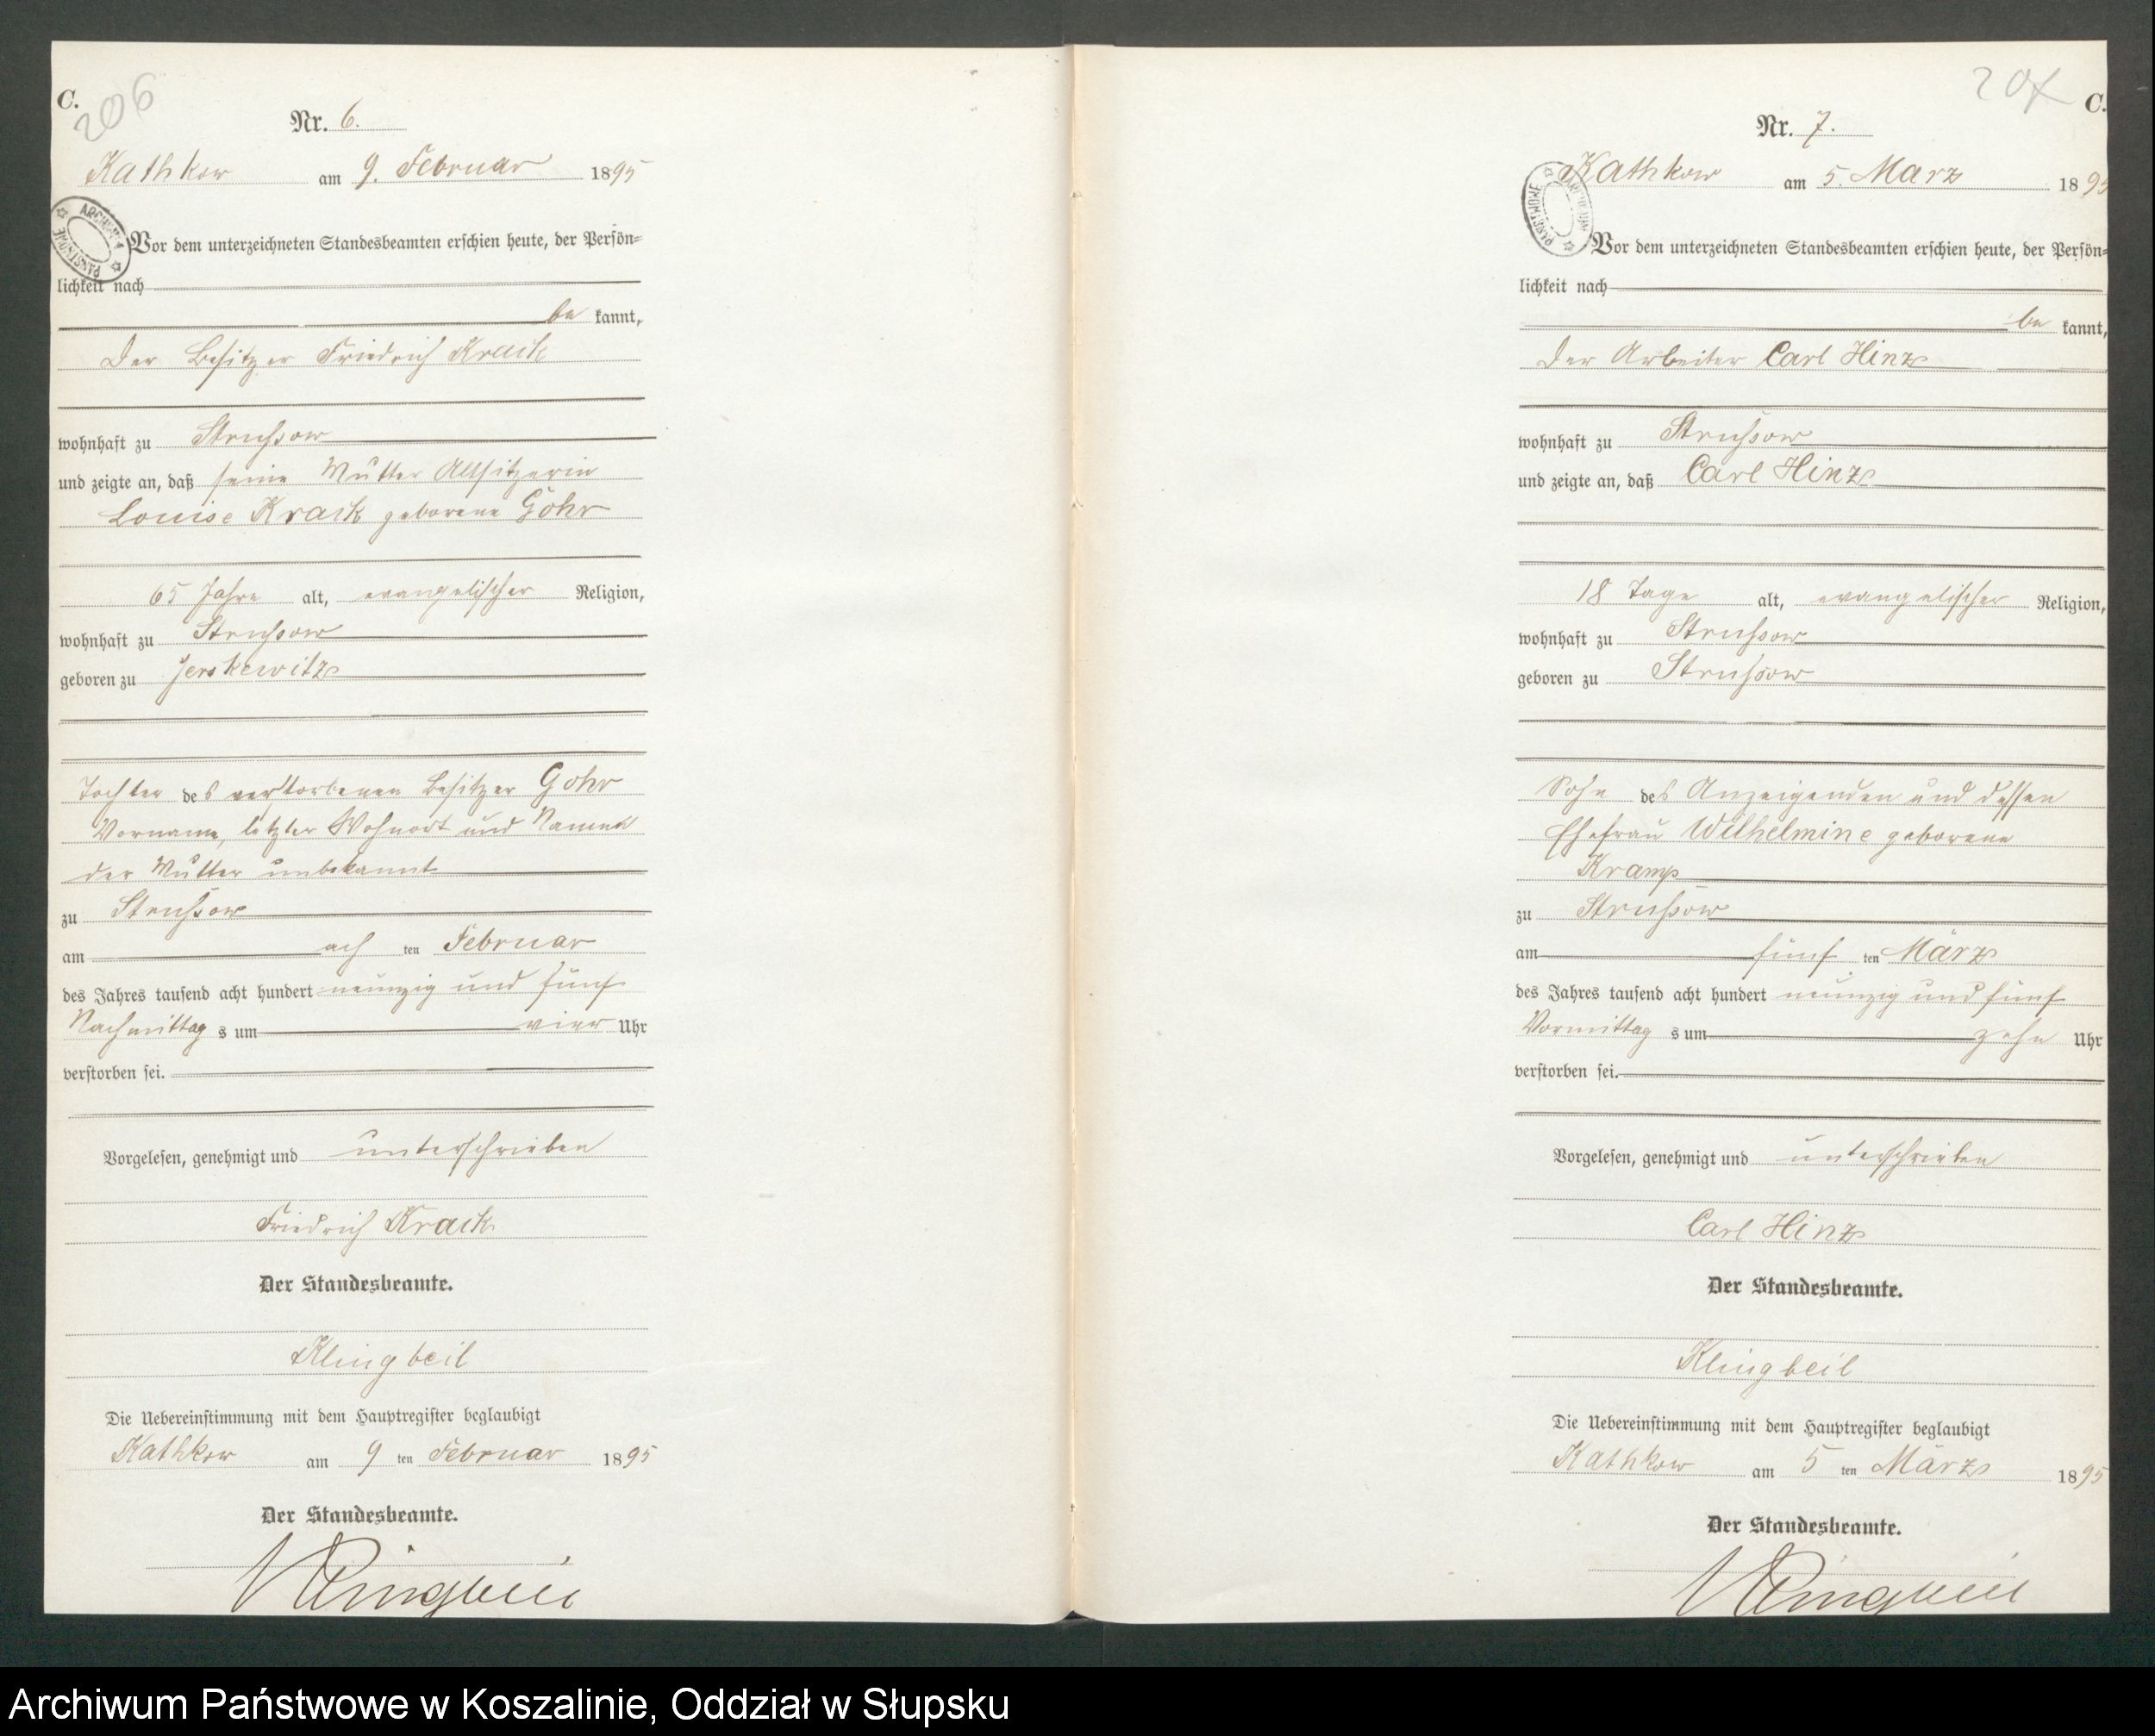 C.
206
Nr. 6.
Kathkow am 9. Februar 1895
ARCHIWUM PAŃSTWOWE
Vor dem unterzeichneten Standesbeamten erschien heute, der Persön=
lichkeit nach
be kannt,
Der Besitzer Friedrich Krack
wohnhaft zu Strussow
und zeigte an, daß seine Mutter Altsitzerin
Louise Krack geborene Gohr
65 Jahre alt, evangelischer Religion,
wohnhaft zu Strussow
geboren zu Jerskewitz
Tochter des verstorbenen Besitzer Gohr
Vorname, letzter Wohnort und Namen
der Mutter unbekannt
zu Strussow
am ach ten Februar
des Jahres tausend acht hundert neunzig und fünf
Nachmittag s um vier Uhr
verstorben sei.
Vorgelesen, genehmigt und unterschrieben
Friedrich Krack
Der Standesbeamte.
Klingbeil
Die Uebereinstimmung mit dem Hauptregister beglaubigt
Kathkow am 9 ten Februar 1895
Der Standesbeamte.
Klingbeil
207
C.
Nr. 7.
Kathkow am 5. März 1895
ARCHIWUM PAŃSTWOWE
Vor dem unterzeichneten Standesbeamten erschien heute, der Persön=
lichkeit nach
be kannt,
Der Arbeiter Carl Hinz
wohnhaft zu Strussow
und zeigte an, daß Carl Hinz
18 Tage alt, evangelischer Religion,
wohnhaft zu Strussow
geboren zu Strussow
Sohn des Anzeigenden und dessen
Ehefrau Wilhelmine geborene
Kramp
zu Strussow
am fünf ten März
des Jahres tausend acht hundert neunzig und fünf
Vormittag s um zehn Uhr
verstorben sei.
Vorgelesen, genehmigt und unterschrieben
Carl Hinz
Der Standesbeamte.
Klingbeil
Die Uebereinstimmung mit dem Hauptregister beglaubigt
Kathkow am 5 ten März 1895
Der Standesbeamte.
Klingbeil
Archiwum Państwowe w Koszalinie, Oddział w Słupsku